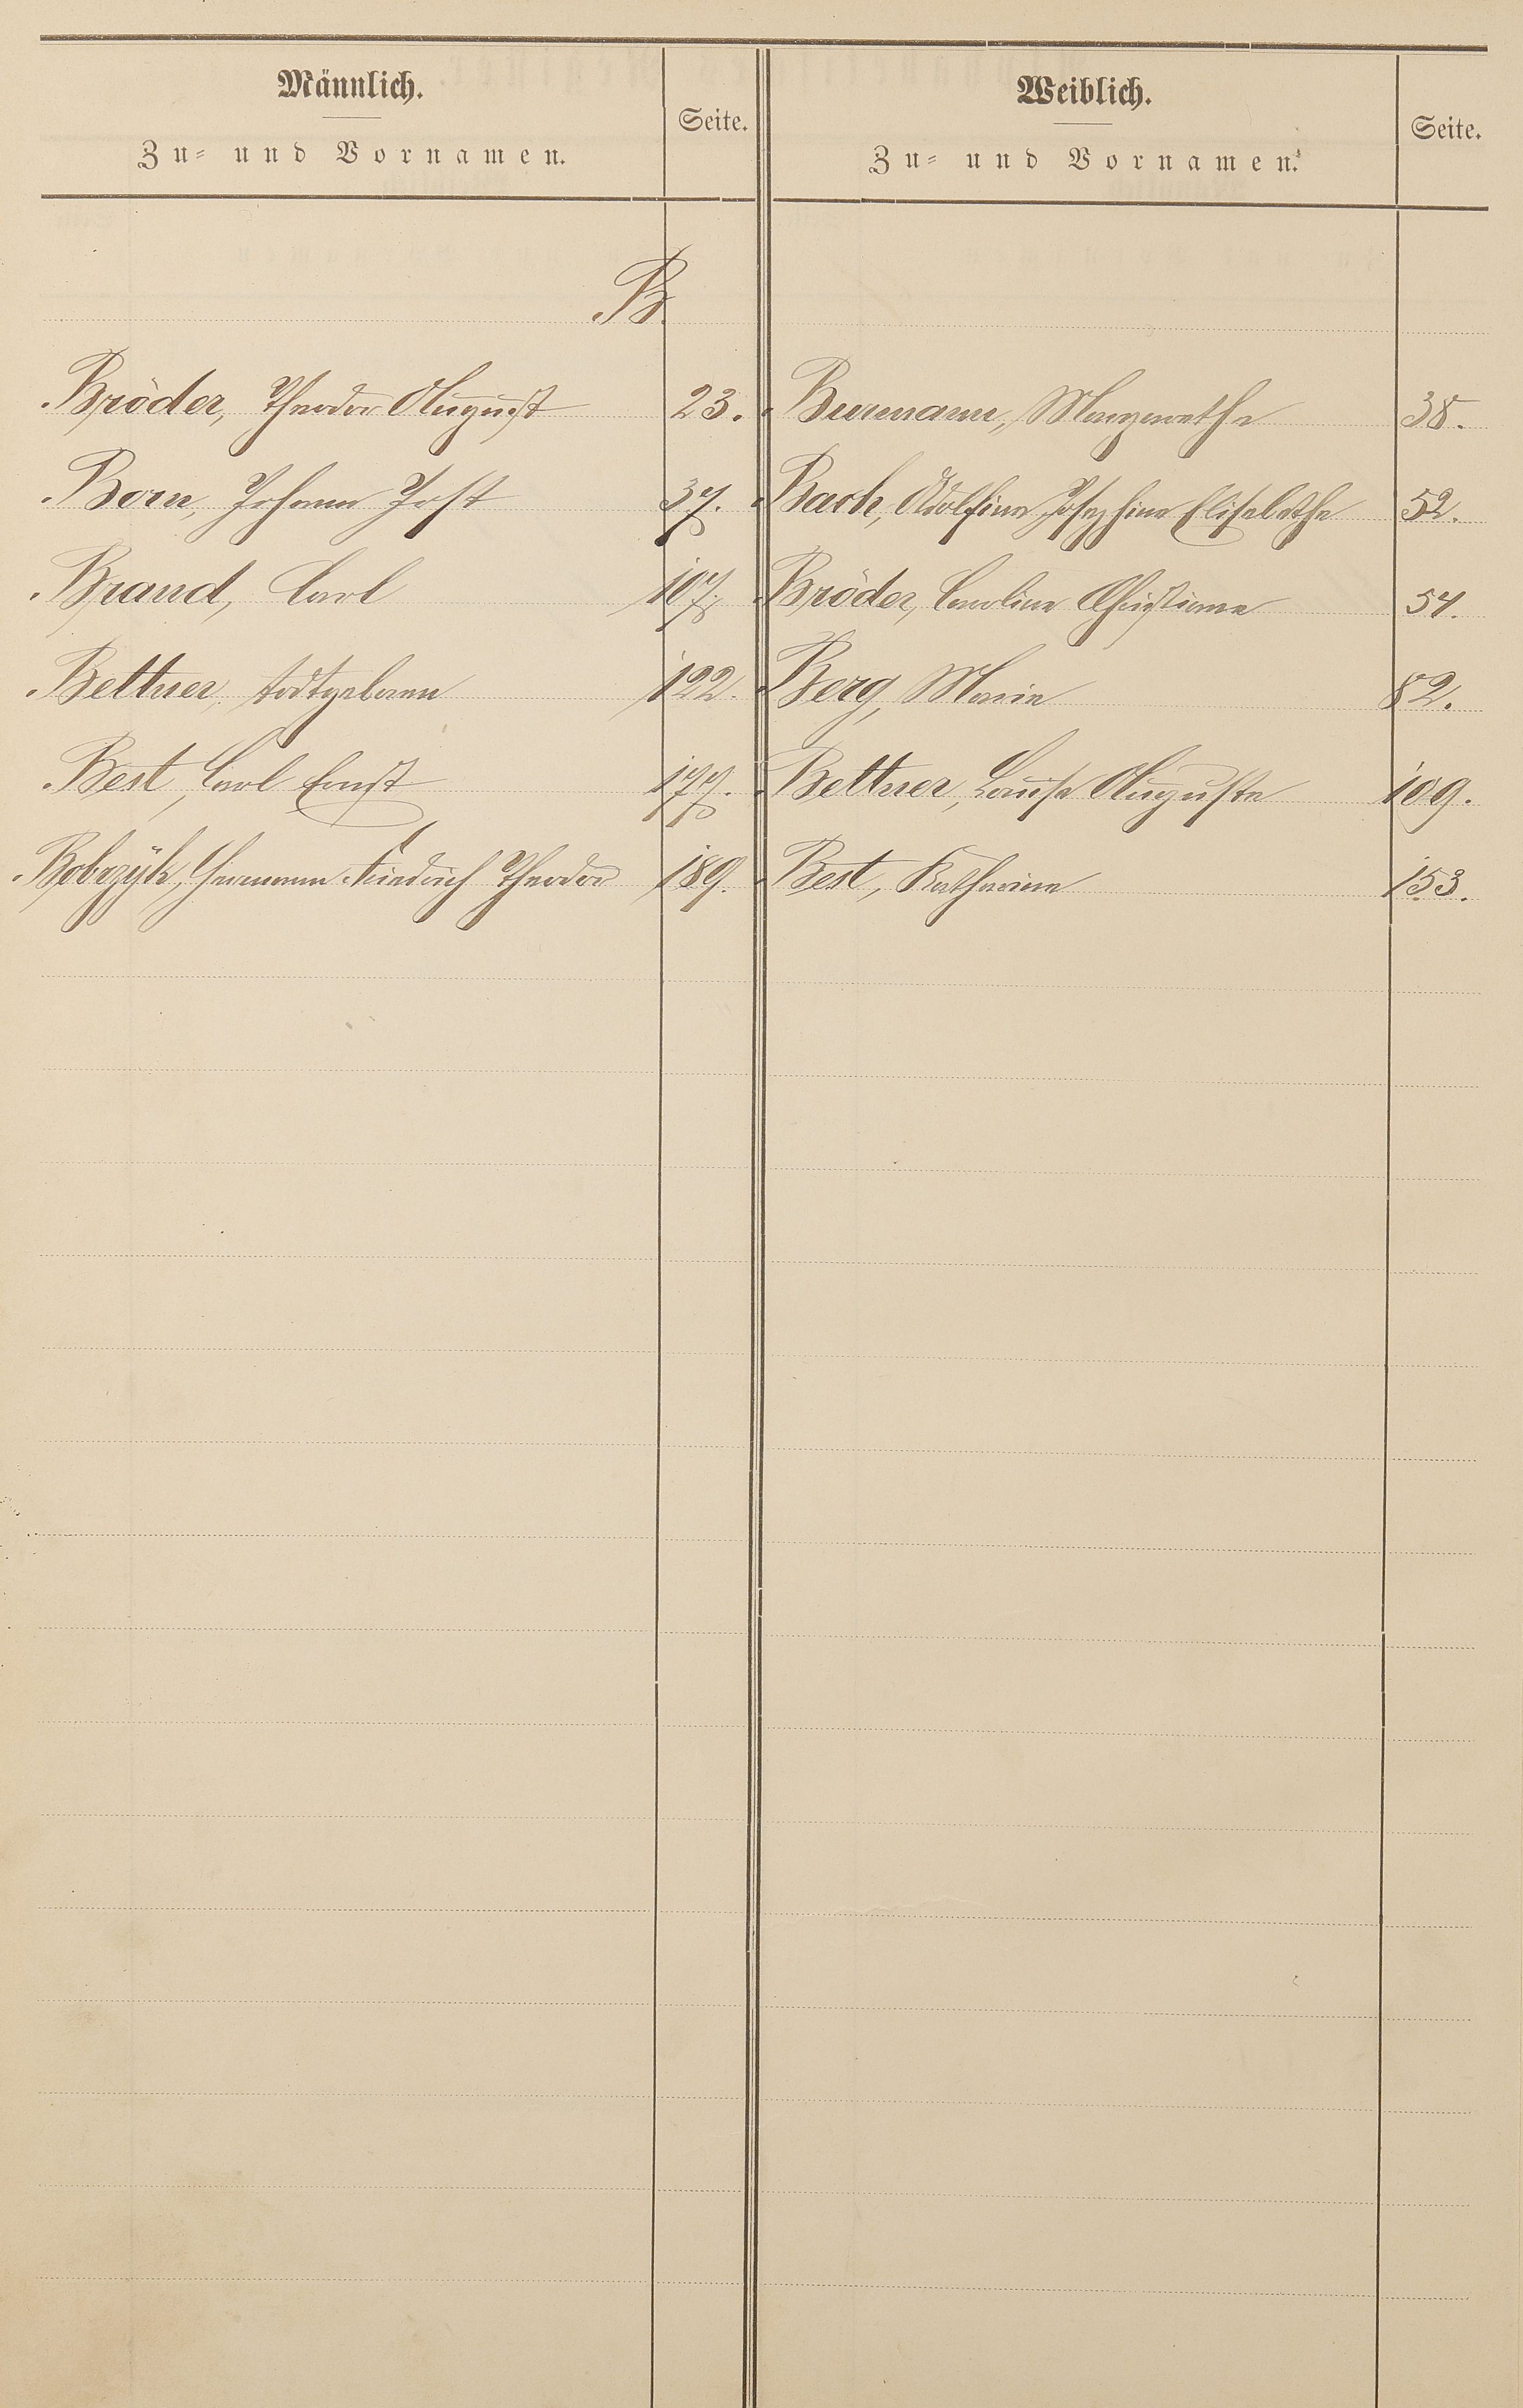 Männlich.
Zu- und Vornamen.
Seite.
Weiblich.
Zu- und Vornamen.
Seite.
B.
Bröder, Theodor August 23.
Born, Johann Jost 37.
Brand, Carl 107.
Bettner, todtgeboren 122.
Best, Carl Ernst 177.
Bobrzÿk, Hermann Friedrich Theodor 189.
Burmann, Margarethe 38.
Bach, Adolfine Josephine Elisabethe 52.
Bröder, Caroline Christiane 54.
Berg, Marie 82.
Bettner, Louise Auguste 109.
Best, Katharine 153.